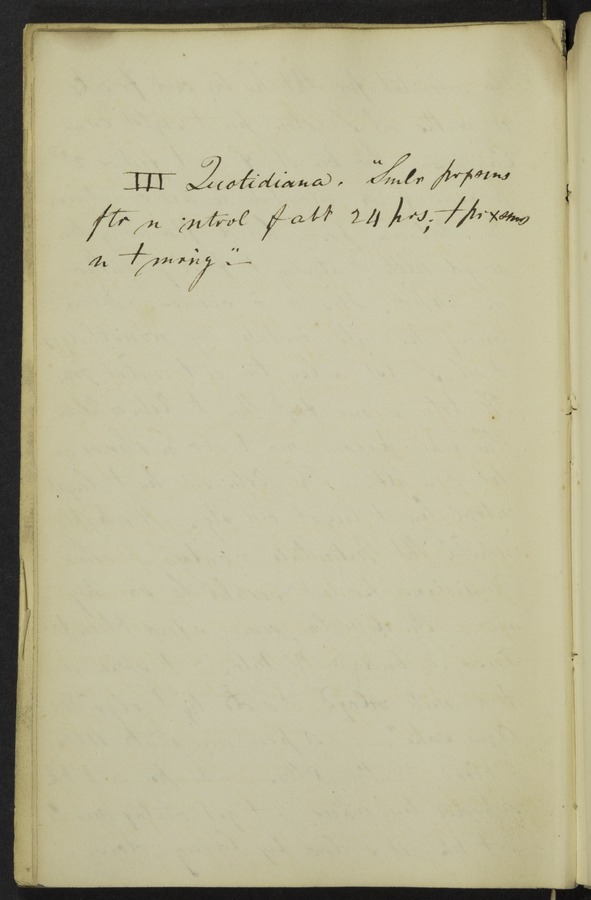 III Quotidiana. "Smlr prxsms
ftr n ntrvl f abt 24 hrs; + prxsms
n + mrng"—